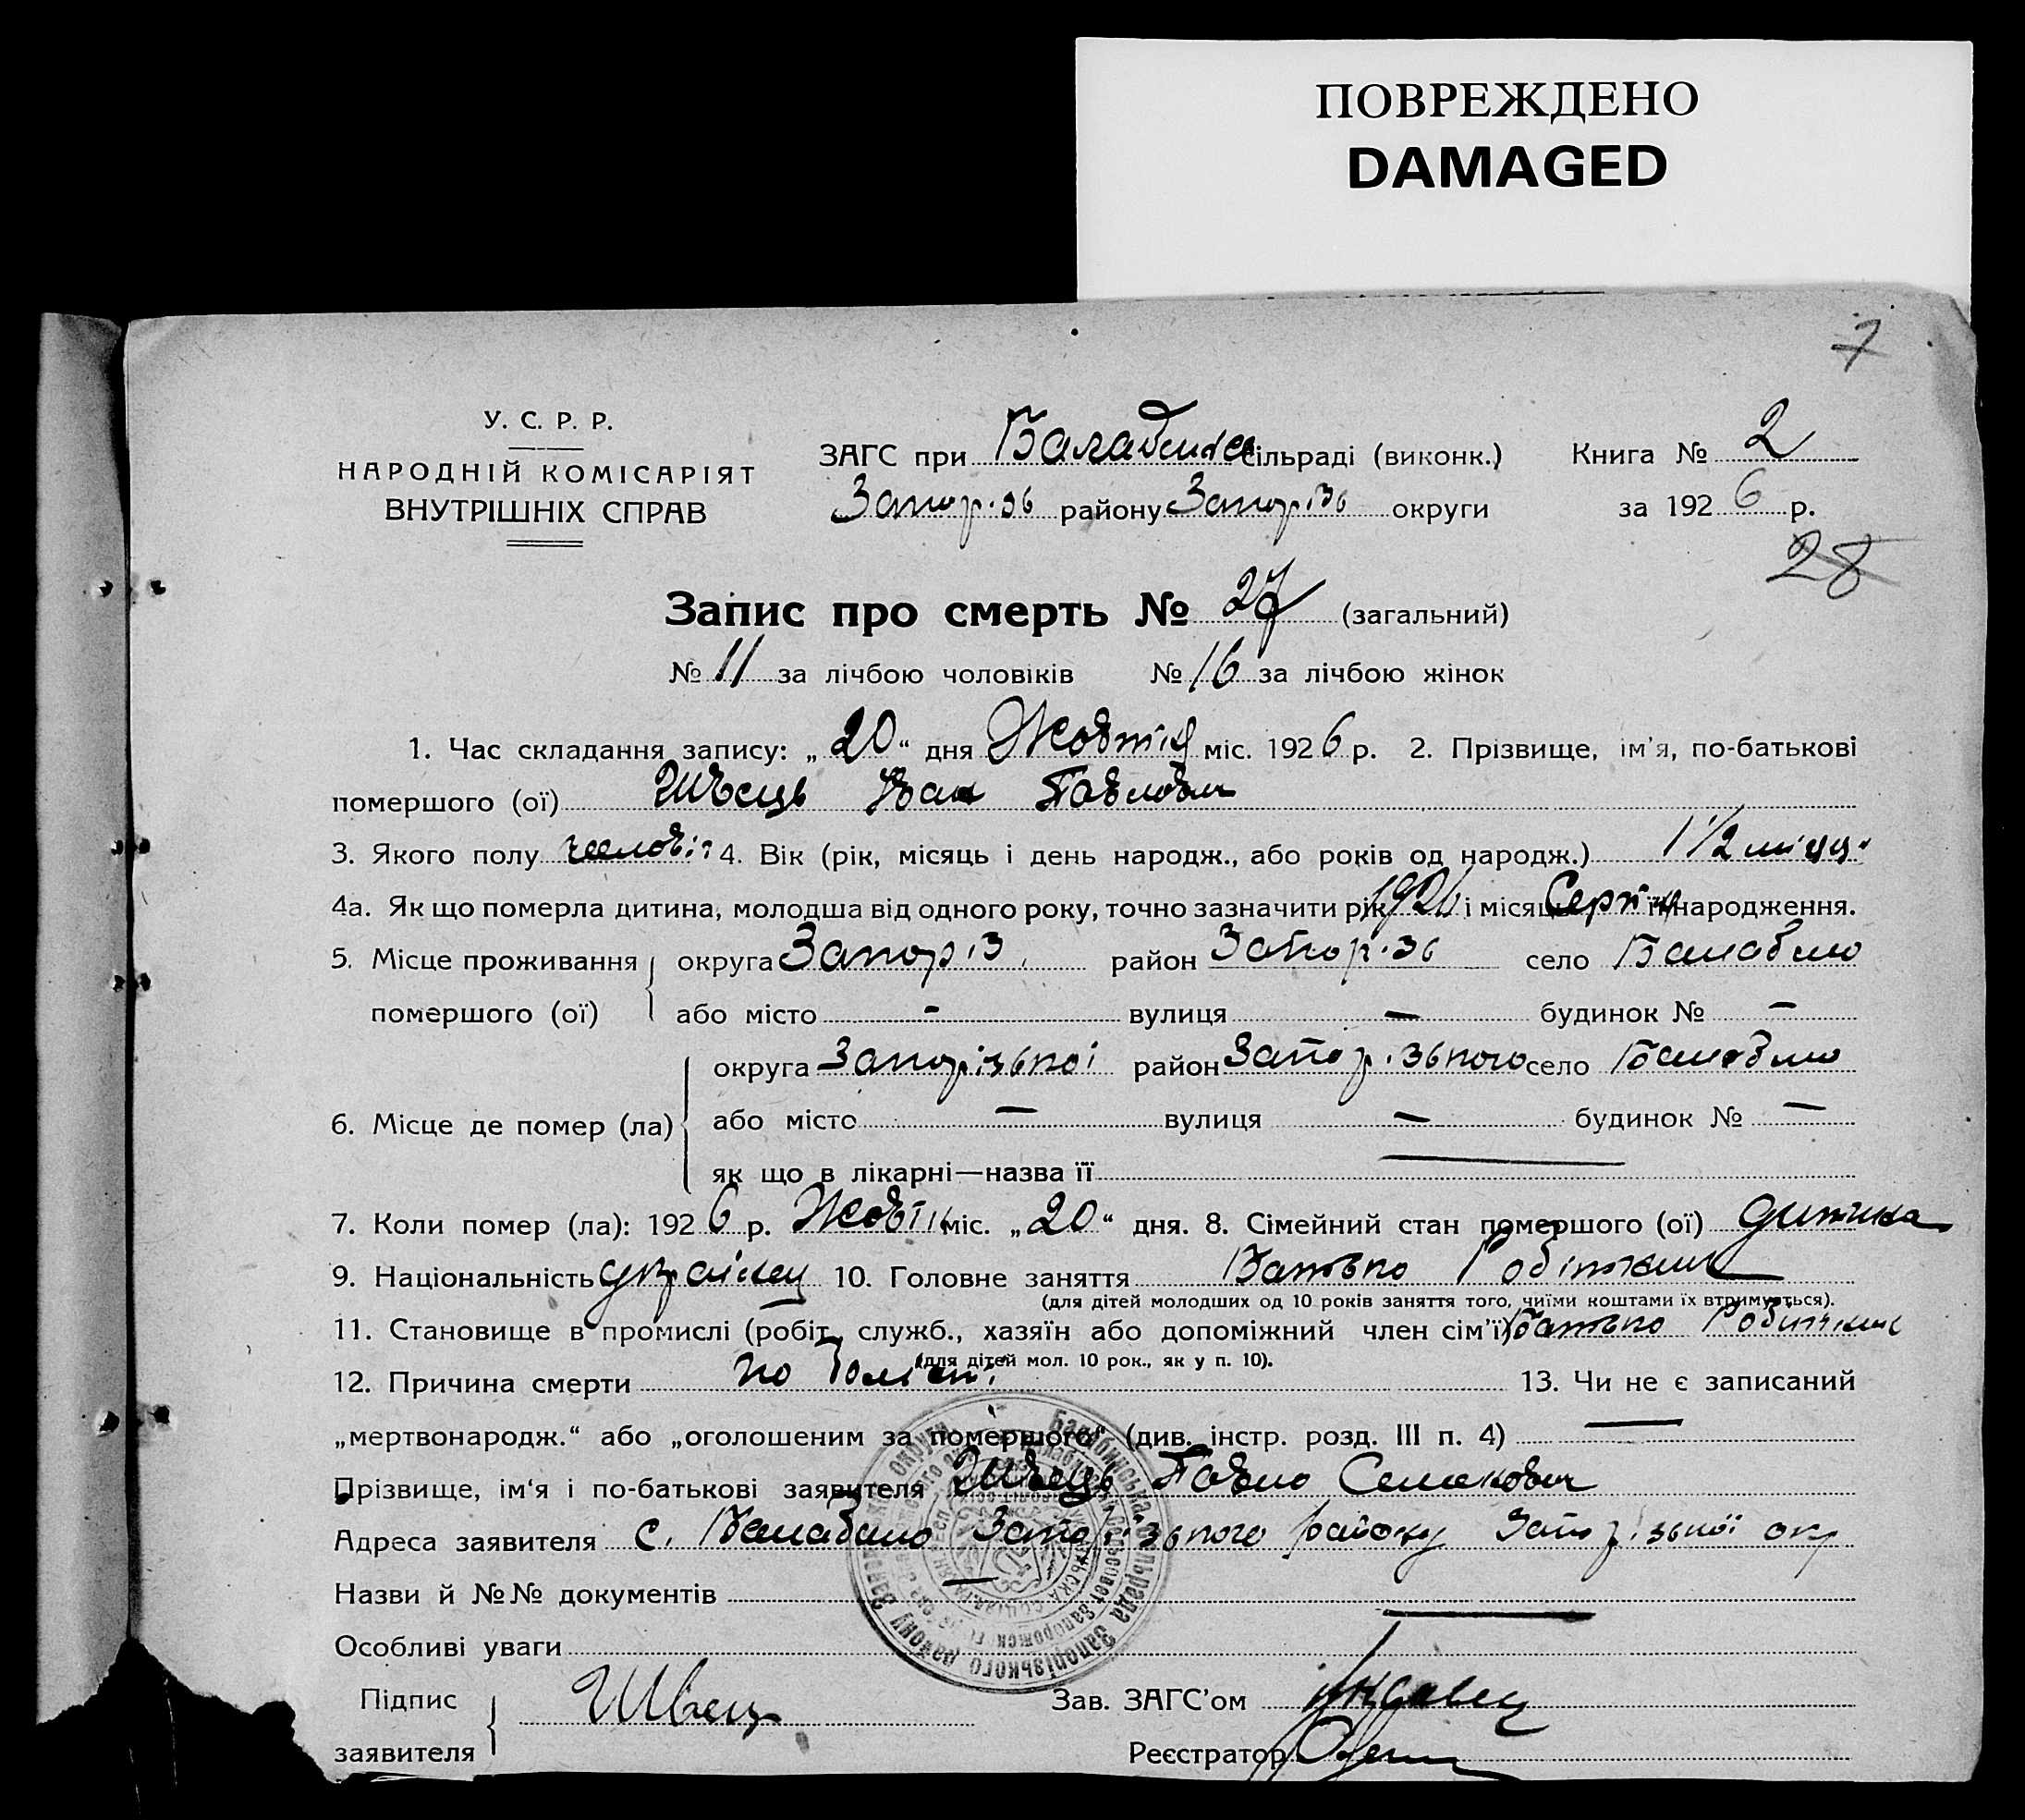 ПОВРЕЖДЕНО
DAMAGED
7
У. С. Р. Р.
НАРОДНІЙ КОМІСАРІЯТ
ВНУТРІШНІХ СПРАВ
ЗАГС при Балабинск сільраді (виконк.) Книга № 2
Запоріз району Запоріз округи за 1926 р.
28
Запис про смерть № 27 (загальний)
№ 11 за лічбою чоловіків № 16 за лічбою жінок
1. Час складання запису: „20“ дня Жовтня міс. 1926 р. 2. Прізвище, ім'я, по-батькові
помершого (ої) Швець Іван Павлович
3. Якого полу чоловіч 4. Вік (рік, місяць і день народж., або років од народж.) 1 1/2 місяц.
4а. Як що померла дитина, молодша від одного року, точно зазначити рік 1926 і місяць Серпня її народження.
5. Місце проживання помершого (ої) округа Запоріз район Запоріз село Балабино
або місто - вулиця — будинок № —
6. Місце де помер (ла) округа Запорізької район Запорізького село Балабино
або місто — вулиця — будинок № —
як що в лікарні—назва її —
7. Коли помер (ла): 1926 р. Жовтня міс. „20“ дня. 8. Сімейний стан помершого (ої) дитина
9. Національність українец 10. Головне заняття Батько Робітник
(для дітей молодших од 10 років заняття того, чиїми коштами їх втримується).
11. Становище в промислі (робіт., служб., хазяїн або допоміжний член сім'ї) батько Робітник
(для дітей мол. 10 рок., як у п. 10).
12. Причина смерти по 13. Чи не є записаний
„мертвонародж.“ або „оголошеним за помершого“ (див. інстр. розд. III п. 4) —
Прізвище, ім'я і по-батькові заявителя Швець Павло Семенович
Адреса заявителя с. Балабино Запорізького району Запорізької окр
Назви й №№ документів —
Особливі уваги
Підпис заявителя Швець Зав. ЗАГС'ом
Реєстратор
Балабинська сільрада Запорізького району Запорізької округи